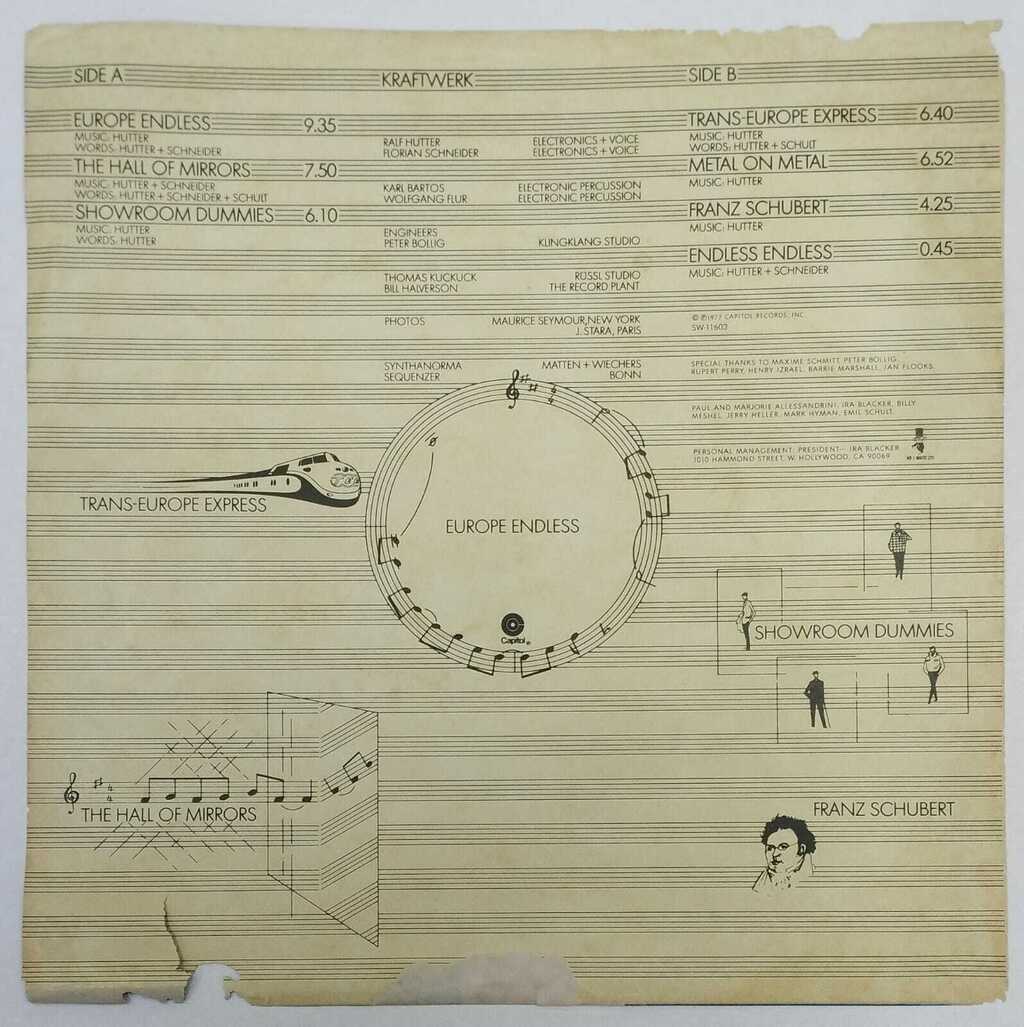 SIDE A
KRAFTWERK
SIDE B
EUROPE ENDLESS 9.35
MUSIC: HUTTER
WORDS: HUTTER + SCHNEIDER
THE HALL OF MIRRORS 7.50
MUSIC: HUTTER + SCHNEIDER
WORDS: HUTTER + SCHNEIDER + SCHULT
SHOWROOM DUMMIES 6.10
MUSIC: HUTTER
WORDS: HUTTER
RALF HUTTER ELECTRONICS + VOICE
FLORIAN SCHNEIDER ELECTRONICS + VOICE
KARL BARTOS ELECTRONIC PERCUSSION
WOLFGANG FLUR ELECTRONIC PERCUSSION
ENGINEERS
PETER BOLLIG KLINGKLANG STUDIO
THOMAS KUCKUCK RÜSSL STUDIO
BILL HALVERSON THE RECORD PLANT
PHOTOS MAURICE SEYMOUR, NEW YORK
J. STARA, PARIS
SYNTHANORMA MATTEN + WIECHERS
SEQUENZER BONN
TRANS-EUROPE EXPRESS 6.40
MUSIC: HUTTER
WORDS: HUTTER + SCHULT
METAL ON METAL 6.52
MUSIC: HUTTER
FRANZ SCHUBERT 4.25
MUSIC: HUTTER
ENDLESS ENDLESS 0.45
MUSIC: HUTTER + SCHNEIDER
© ℗1977 CAPITOL RECORDS, INC.
SW-11603
SPECIAL THANKS TO MAXIME SCHMITT, PETER BOLLIG,
RUPERT PERRY, HENRY IZRAEL, BARRIE MARSHALL, IAN FLOOKS.
PAUL AND MARJORIE ALLESSANDRINI, IRA BLACKER, BILLY
MESHEL, JERRY HELLER, MARK HYMAN, EMIL SCHULT.
PERSONAL MANAGEMENT: PRESIDENT-- IRA BLACKER
1010 HAMMOND STREET, W. HOLLYWOOD, CA 90069
TRANS-EUROPE EXPRESS
EUROPE ENDLESS
Capitol
SHOWROOM DUMMIES
THE HALL OF MIRRORS
FRANZ SCHUBERT